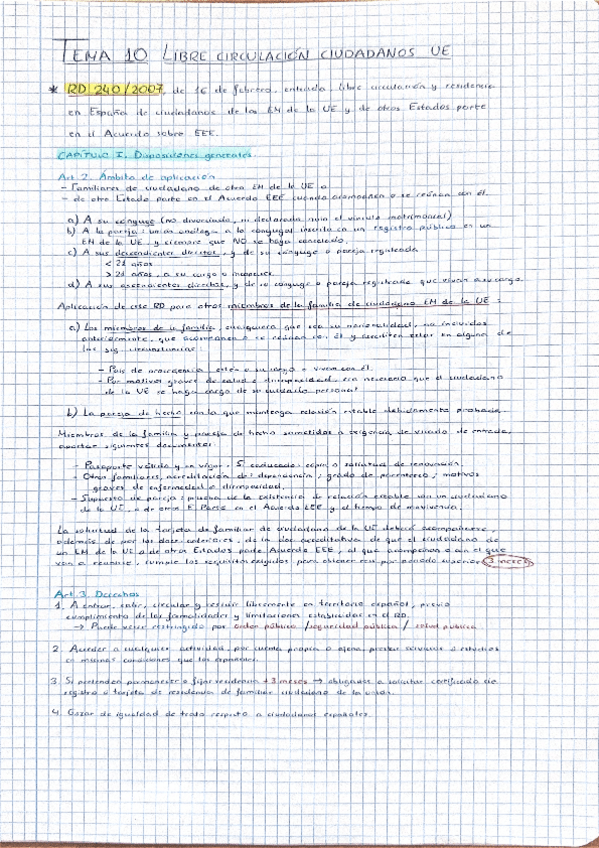 TEMA 10 LIBRE CIRCULACIÓN CIUDADANOS UE
* RD 240/2007, de 16 de febrero, entrada, libre circulación y residencia
en España de ciudadanos de los EM de la UE y de otros Estados parte
en el Acuerdo sobre EEE.
CAPÍTULO I. Disposiciones generales.
Art. 2. Ámbito de aplicación
- Familiares de ciudadano de otro EM de la UE o
- de otro Estado parte en el Acuerdo EEE cuando acompañen o se reúnan con él.
a) A su cónyuge (no divorciado, ni declarada nula el vínculo matrimonial)
b) A la pareja: unión análoga a la conyugal inscrita en un registro público en un
EM de la UE, y siempre que NO se haya cancelado.
c) A sus descendientes directos, y de su cónyuge o pareja registrada
< 21 años
> 21 años, a su cargo o incapaces
d) A sus ascendientes directos, y de su cónyuge o pareja registrada que vivan a su cargo.
Aplicación de este RD para otros miembros de la familia de ciudadano EM de la UE:
a) Los miembros de la familia, cualquiera que sea su nacionalidad, no incluidos
anteriormente, que acompañen o se reúnan con él y acrediten estar en alguna de
las sig. circunstancias:
- País de procedencia, estén a su cargo o vivan con él.
- Por motivos graves de salud o discapacidad, sea necesario que el ciudadano
de la UE se haga cargo de su cuidado personal
b) La pareja de hecho con la que mantenga relación estable debidamente probada.
Miembros de la familia y pareja de hecho sometidos a exigencia de visado de entrada,
aportar siguientes documentos:
- Pasaporte válido y en vigor. Si caducado: copia y solicitud de renovación.
- Otros familiares, acreditación de: dependencia, grado de parentesco, motivos
graves de enfermedad o discapacidad.
- Supuesto de pareja: prueba de la existencia de relación estable con un ciudadano
de la UE o de otros E. Parte en el Acuerdo EEE y el tiempo de convivencia.
La solicitud de la tarjeta de familiar de ciudadano de la UE deberá acompañarse,
además de por los docs anteriores, de la doc. acreditativa de que el ciudadano de
un EM de la UE o de otros Estados parte Acuerdo EEE, al que acompañan o con el que
van a reunirse, cumple los requisitos exigidos para obtener por periodo superior 3 meses
Art. 3. Derechos
1. A entrar, salir, circular y residir libremente en territorio español, previo
cumplimiento de las formalidades y limitaciones establecidas en el RD.
→ Puede verse restringido por orden público / seguridad pública / salud pública
2. Acceder a cualquier actividad, por cuenta propia o ajena, prestar servicios o estudios
en mismas condiciones que los españoles.
3. Si pretenden permanecer o fijar residencia +3 meses → obligados a solicitar certificado de
registro o tarjeta de residencia de familiar ciudadano de la unión.
4. Gozar de igualdad de trato respecto a ciudadanos españoles.